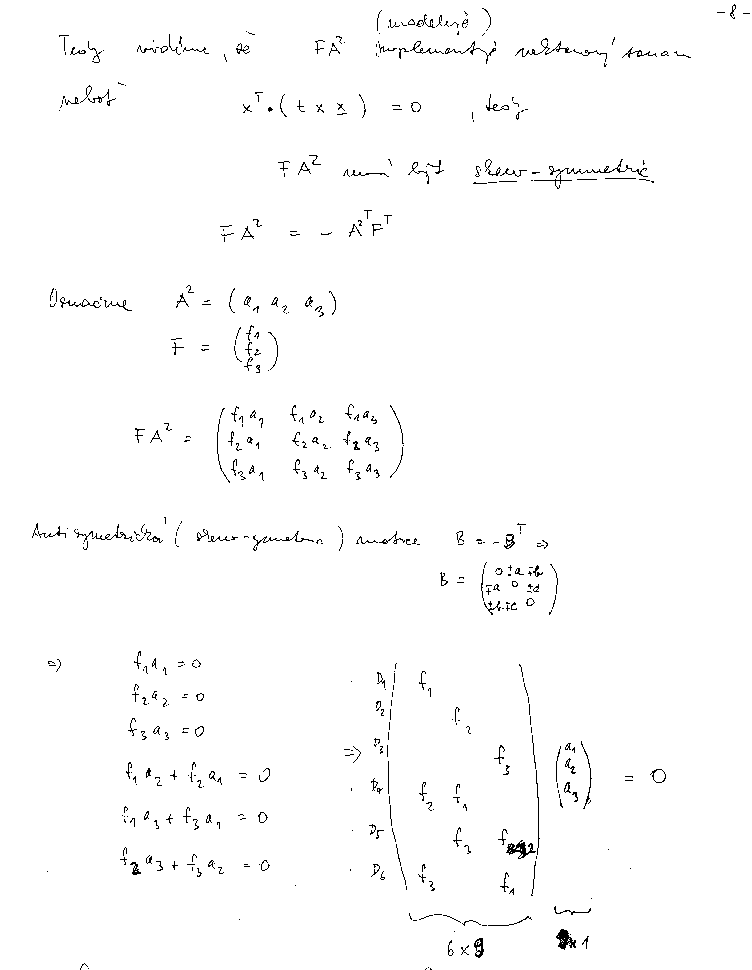 - 8 -
(modeluje)
Tedy vidíme, že FA² implementuje vektorový součin
neboť xᵀ·(t × x) = 0 , tedy
FA² musí být skew-symmetric
FA² = - A²ᵀFᵀ
Označme A² = (a₁ a₂ a₃)
F = (f₁
f₂
f₃)
FA² = (f₁a₁ f₁a₂ f₁a₃
f₂a₁ f₂a₂ f₂a₃
f₃a₁ f₃a₂ f₃a₃)
Antisymetrická ( ) matice B = -Bᵀ ⇒
B = (0 ±a ∓b
∓a 0 ±c
±b ∓c 0)
⇒ f₁a₁ = 0
f₂a₂ = 0
f₃a₃ = 0
f₁a₂ + f₂a₁ = 0
f₁a₃ + f₃a₁ = 0
f₂a₃ + f₃a₂ = 0
D₁ f₁
D₂ f₂
⇒ D₃ f₃ (a₁
a₂
a₃) = 0
D₄ f₂ f₁
D₅ f₃ f₂
D₆ f₃ f₁
6 × 9 9 × 1